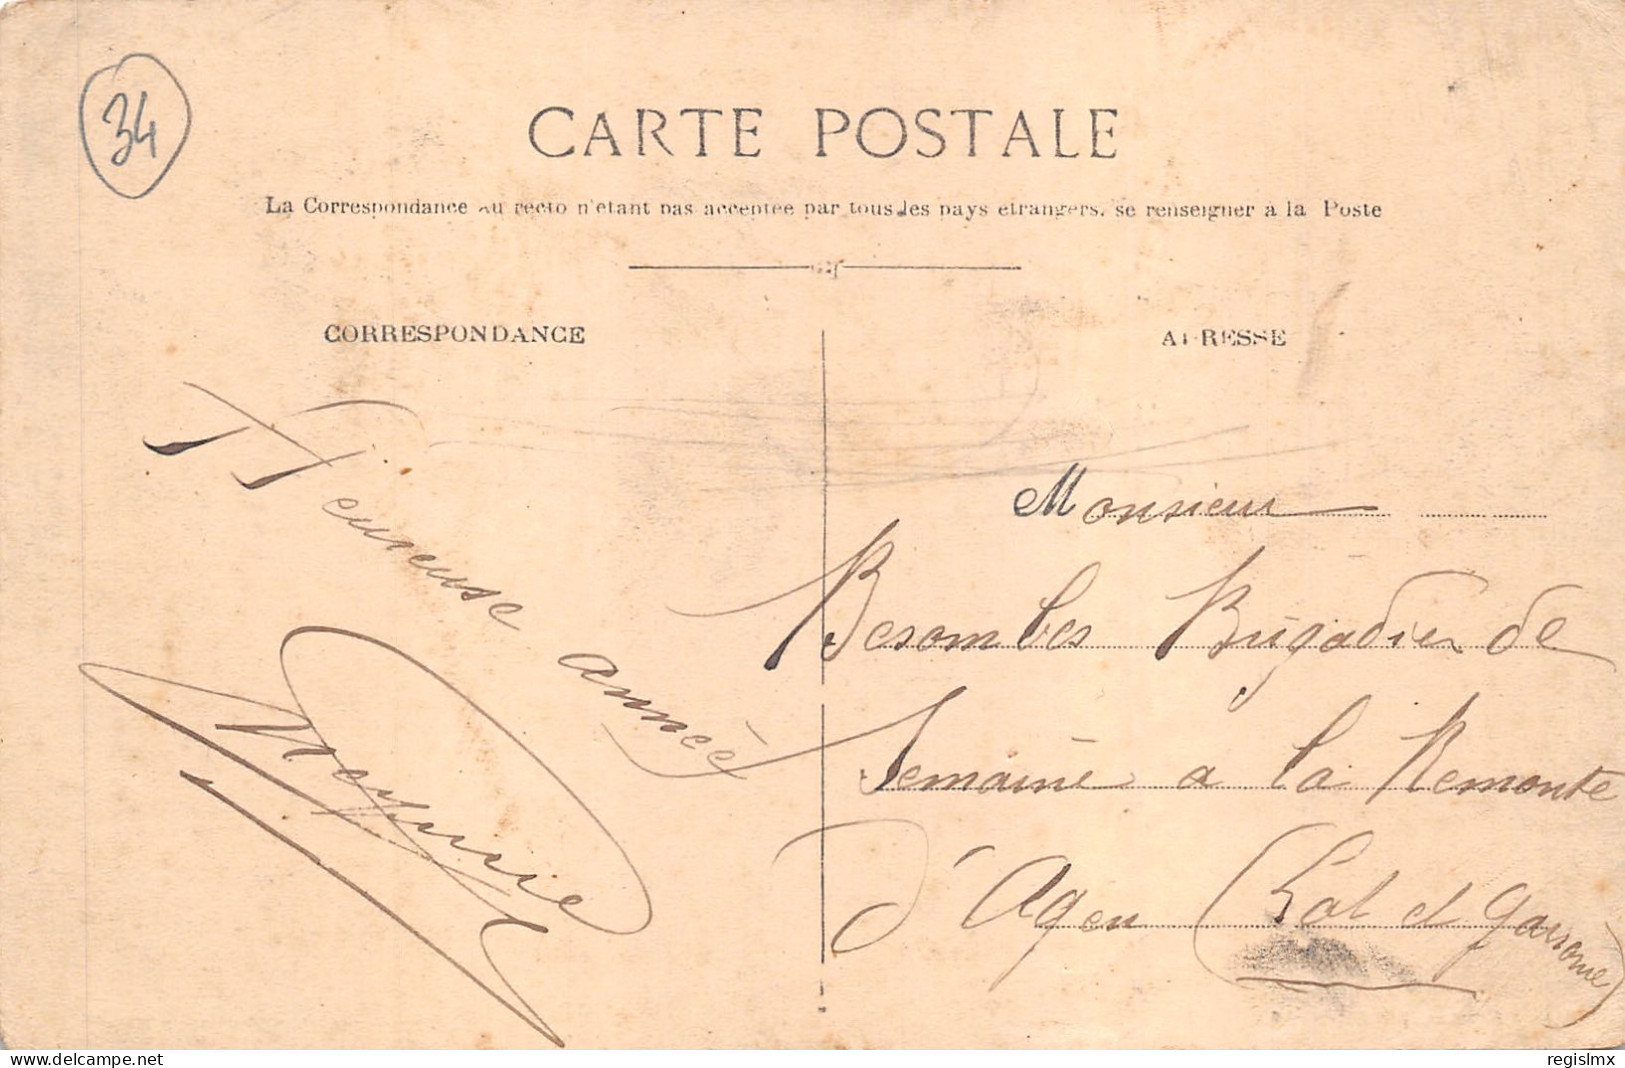 34
CARTE POSTALE
La Correspondance au recto n'étant pas acceptée par tous les pays étrangers, se renseigner à la Poste
CORRESPONDANCE
Heureuse année
ADRESSE
Monsieur
Besombes Brigadier de
Semaine a la Remonte
d'Agen (Lot et Garonne)
delcampe.net
regislmx